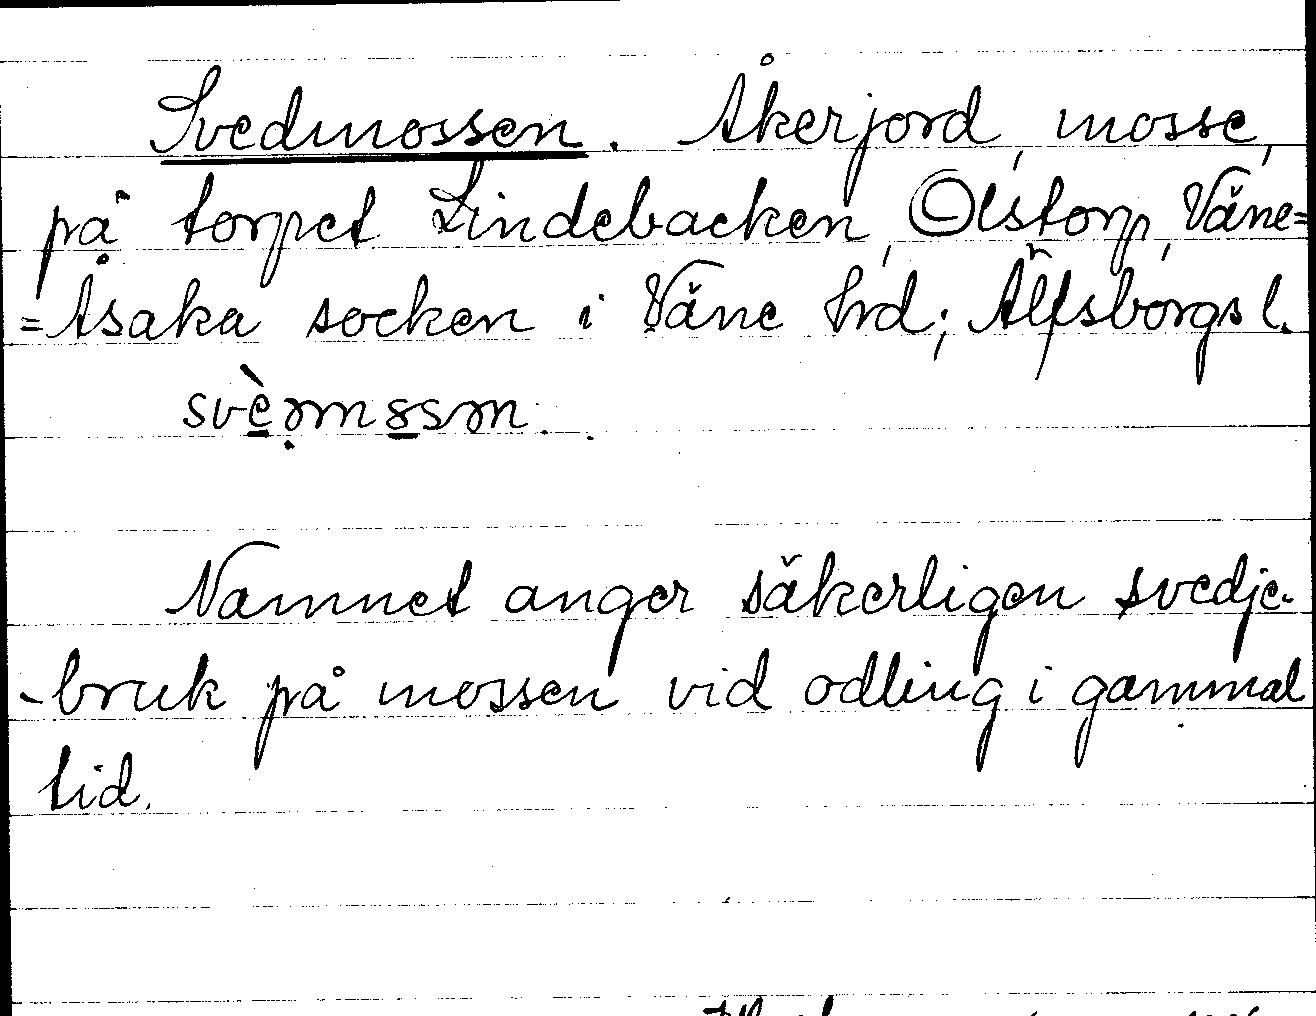 Svedmossen. Åkerjord, mosse,
på torpet Lindebacken, Olstorp, Väne=
=Åsaka socken i Väne hrd; Älfsborgs l.
Namnet anger säkerligen svedje-
-bruk på mossen vid odling i gammal
tid.